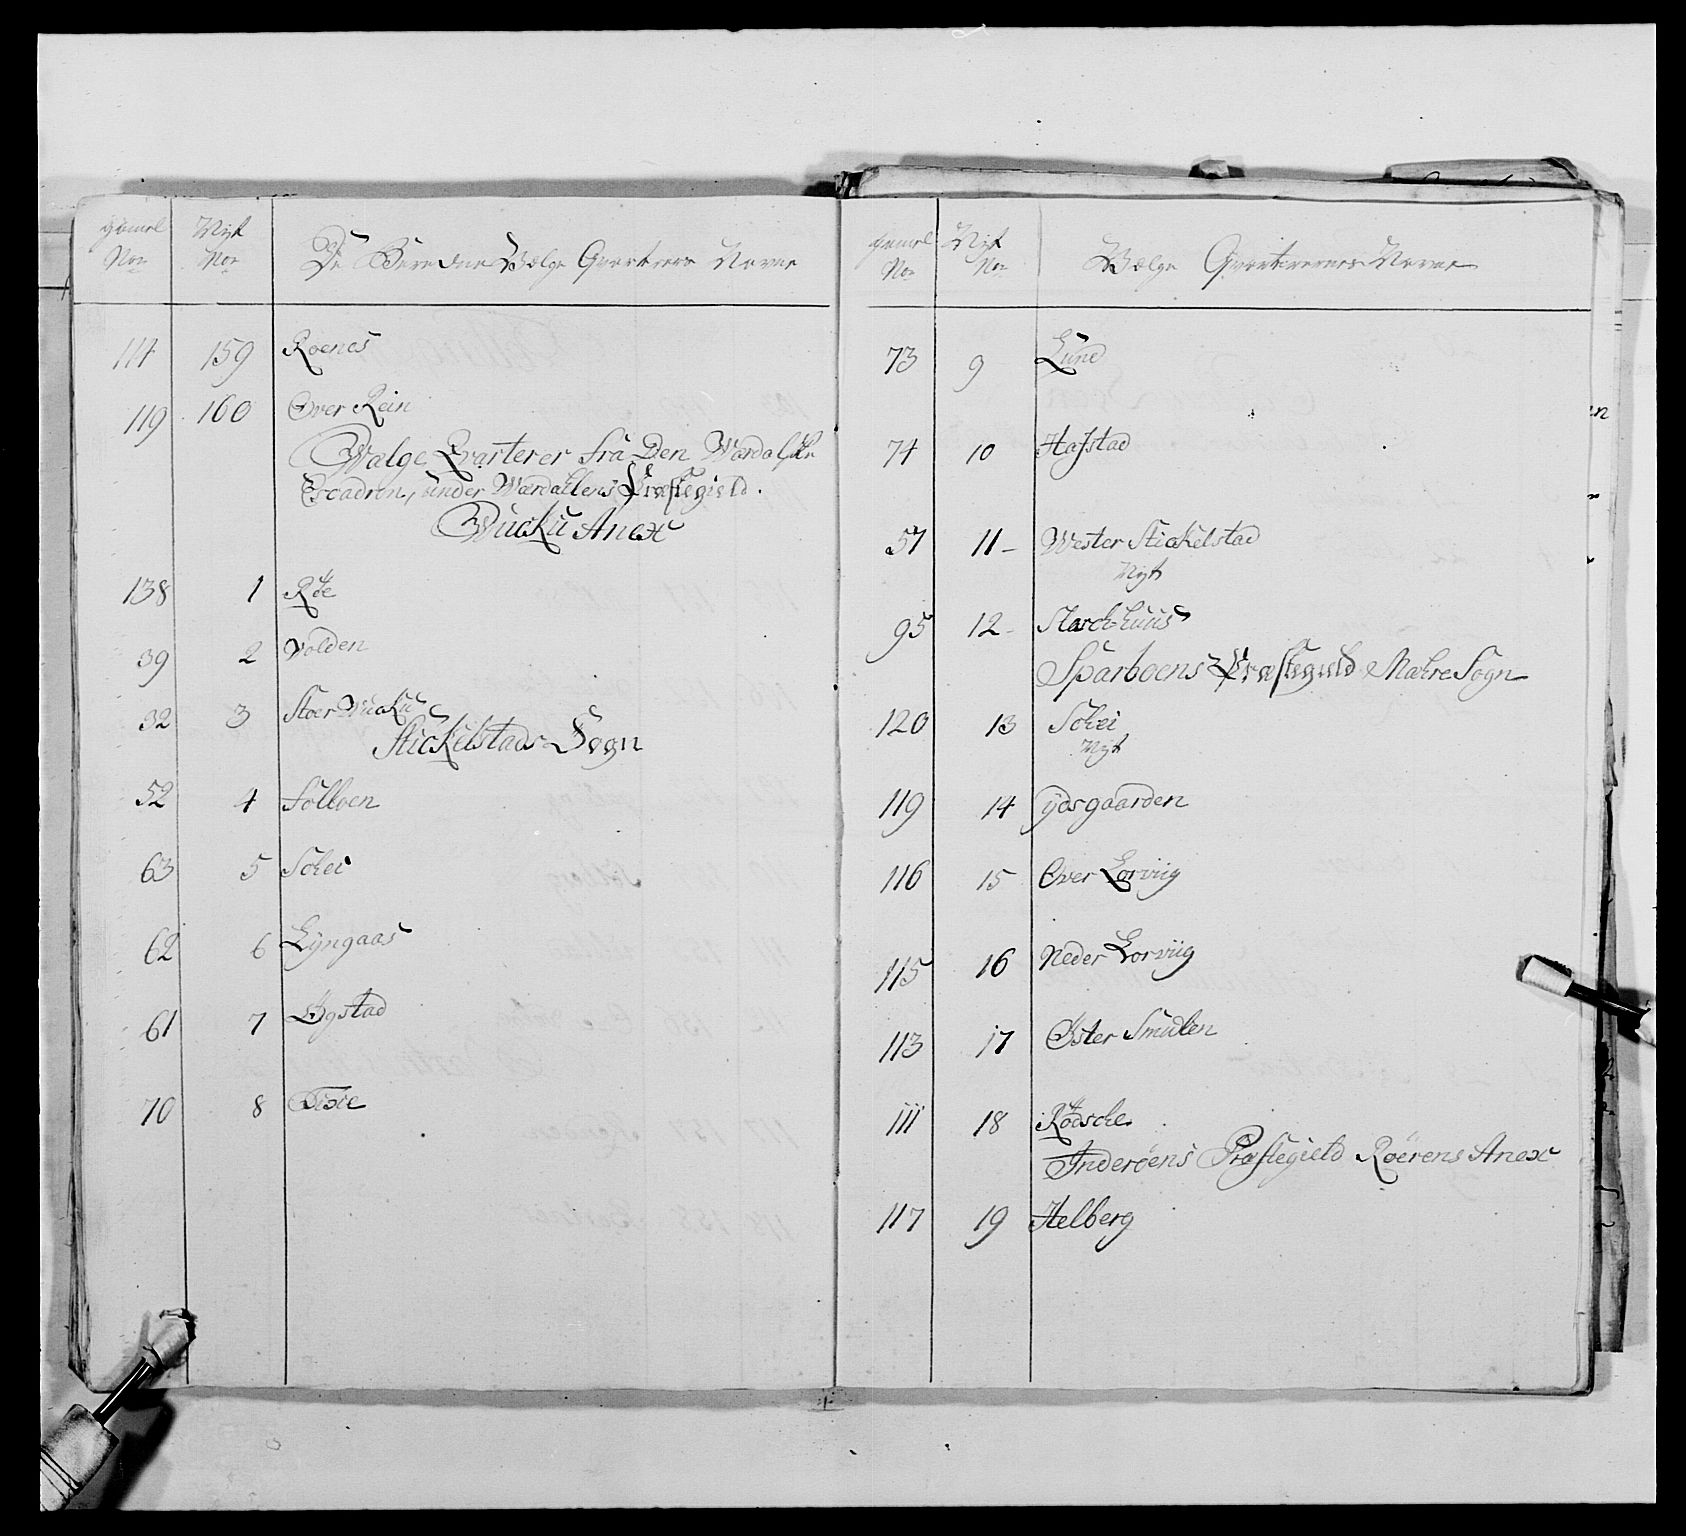 Gamel No: Nyt No: De Beredne Vælge Qvarterers Navne
114 159 Roenes
119 160 Over Rein
Walge Qvarterer fra Den Wærdalske
Escadron, under Wærdahlens Præstegield.
Wucku Anex
138 1 Røe
39 2 Volden
32 3 Stoer Wucku
Stickelstads Sogn
52 4 Folloen
63 5 Schei
62 6 Lyngaas
61 7 Øgstad
70 8
Gamel No: Nyt No: Vælge Qvarterernes Navne
73 9 Lund
74 10 Hafstad
57 11 - Wester Stickelstad
Nyt
95 12 -
Sparboens Præstegield Mahre Sogn
120 13 Schei
Nyt
119 14 ydsgaarden
116 15 Over Lorviig
115 16 Neder Lorviig
113 17 Øster Smulen
111 18
Inderøens Præstegield Røerens Anex
117 19 Helberg